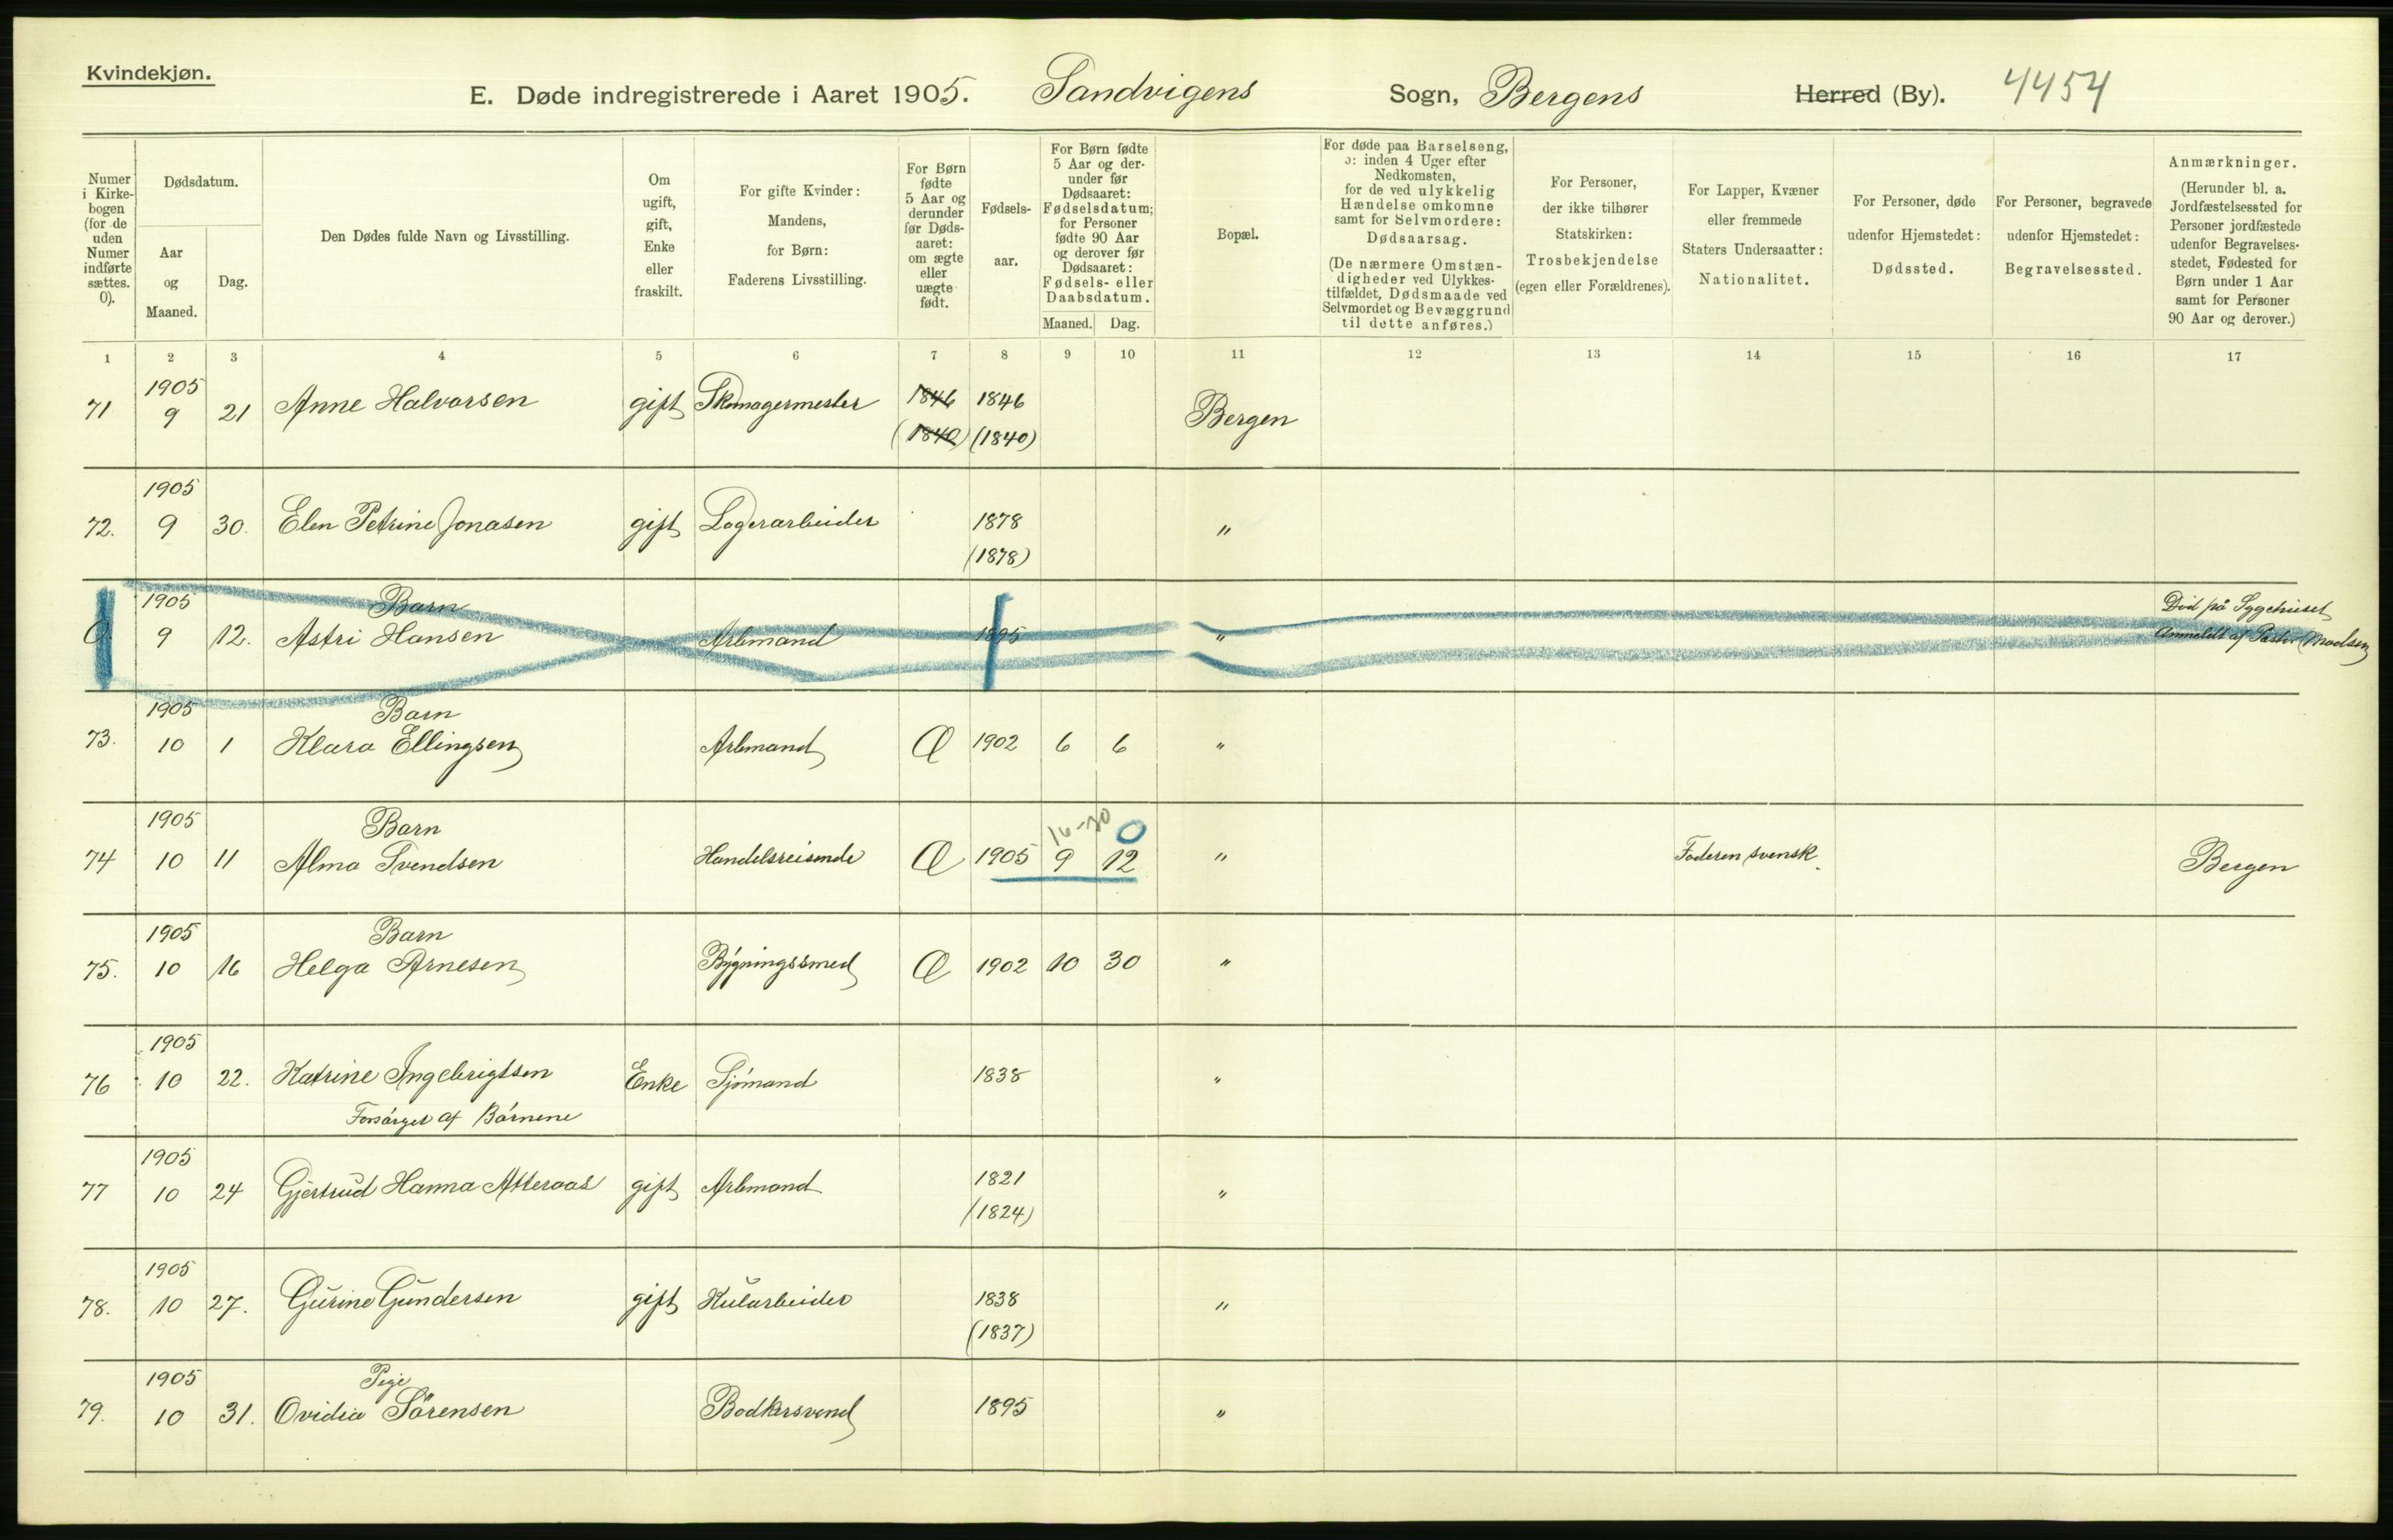 Kvindekjøn.
E. Døde indregistrerede i Aaret 1905. Sandvigens Sogn, Bergens Herred (By). 4454
Numer i Kirke-bogen (for de uden Numer indførte sættes. 0).
Dødsdatum.
Aar og Maaned.
Dag.
Den Dødes fulde Navn og Livsstilling.
Om ugift, gift, Enke eller fraskilt.
For gifte Kvinder: Mandens, for Børn: Faderens Livsstilling.
For Børn fødte 5 Aar og derunder før Døds-aaret: om ægte eller uægte født.
Fødsels-aar.
For Børn fødte 5 Aar og der-under før Dødsaaret: Fødselsdatum; for Personer fødte 90 Aar og derover før Dødsaaret: Fødsels- eller Daabsdatum.
Maaned. Dag.
Bopæl.
For døde paa Barselseng, ɔ: inden 4 Uger efter Nedkomsten, for de ved ulykkelig Hændelse omkomne samt for Selvmordere: Dødsaarsag. (De nærmere Omstæn-digheder ved Ulykkes-tilfældet, Dødsmaade ved Selvmordet og Bevæggrund til dette anføres.)
For Personer, der ikke tilhører Statskirken: Trosbekjendelse (egen eller Forældrenes).
For Lapper, Kvæner eller fremmede Staters Undersaatter: Nationalitet.
For Personer, døde udenfor Hjemstedet: Dødssted.
For Personer, begravede udenfor Hjemstedet: Begravelsessted.
Anmærkninger. (Herunder bl. a. Jordfæstelsessted for Personer jordfæstede udenfor Begravelses-stedet, Fødested for Børn under 1 Aar samt for Personer 90 Aar og derover.)
1 2 3 4 5 6 7 8 9 10 11 12 13 14 15 16 17
1905
71 9 21 Anne Halvorsen gift Skomagermester 1846 1846 Bergen
(1840) (1840)
1905
72. 9 30. Elen Petrine Jonasen gift Lagerarbeider 1878 "
(1878)
1905 Barn Död på Sygehuset
0. 9 12. Astri Hansen Arbmand 1895 " Anmeldt af Pastor Madsen
1905 Barn
73. 10 1 Klara Ellingsen Arbmand Æ 1902 6 6 "
1905 Barn 16-30 0
74 10 11 Alma Svendsen Handelsreisende Æ 1905 9 12 " Faderen svensk. Bergen
1905 Barn
75. 10 16 Helga Arnesen Bygningssmed Æ 1902 10 30 "
1905
76 10 22. Katrine Ingebrigtsen Enke Sjömand 1838 "
Forsörget af Börnene
1905
77 10 24 Gjertrud Hanna Atteraas gift Arbmand 1821 "
(1824)
1905
78. 10 27. Gurine Gundersen gift Kularbeider 1838 "
(1837)
1905 Pige
79. 10 31. Ovidia Sörensen Bodkersvend 1895 "